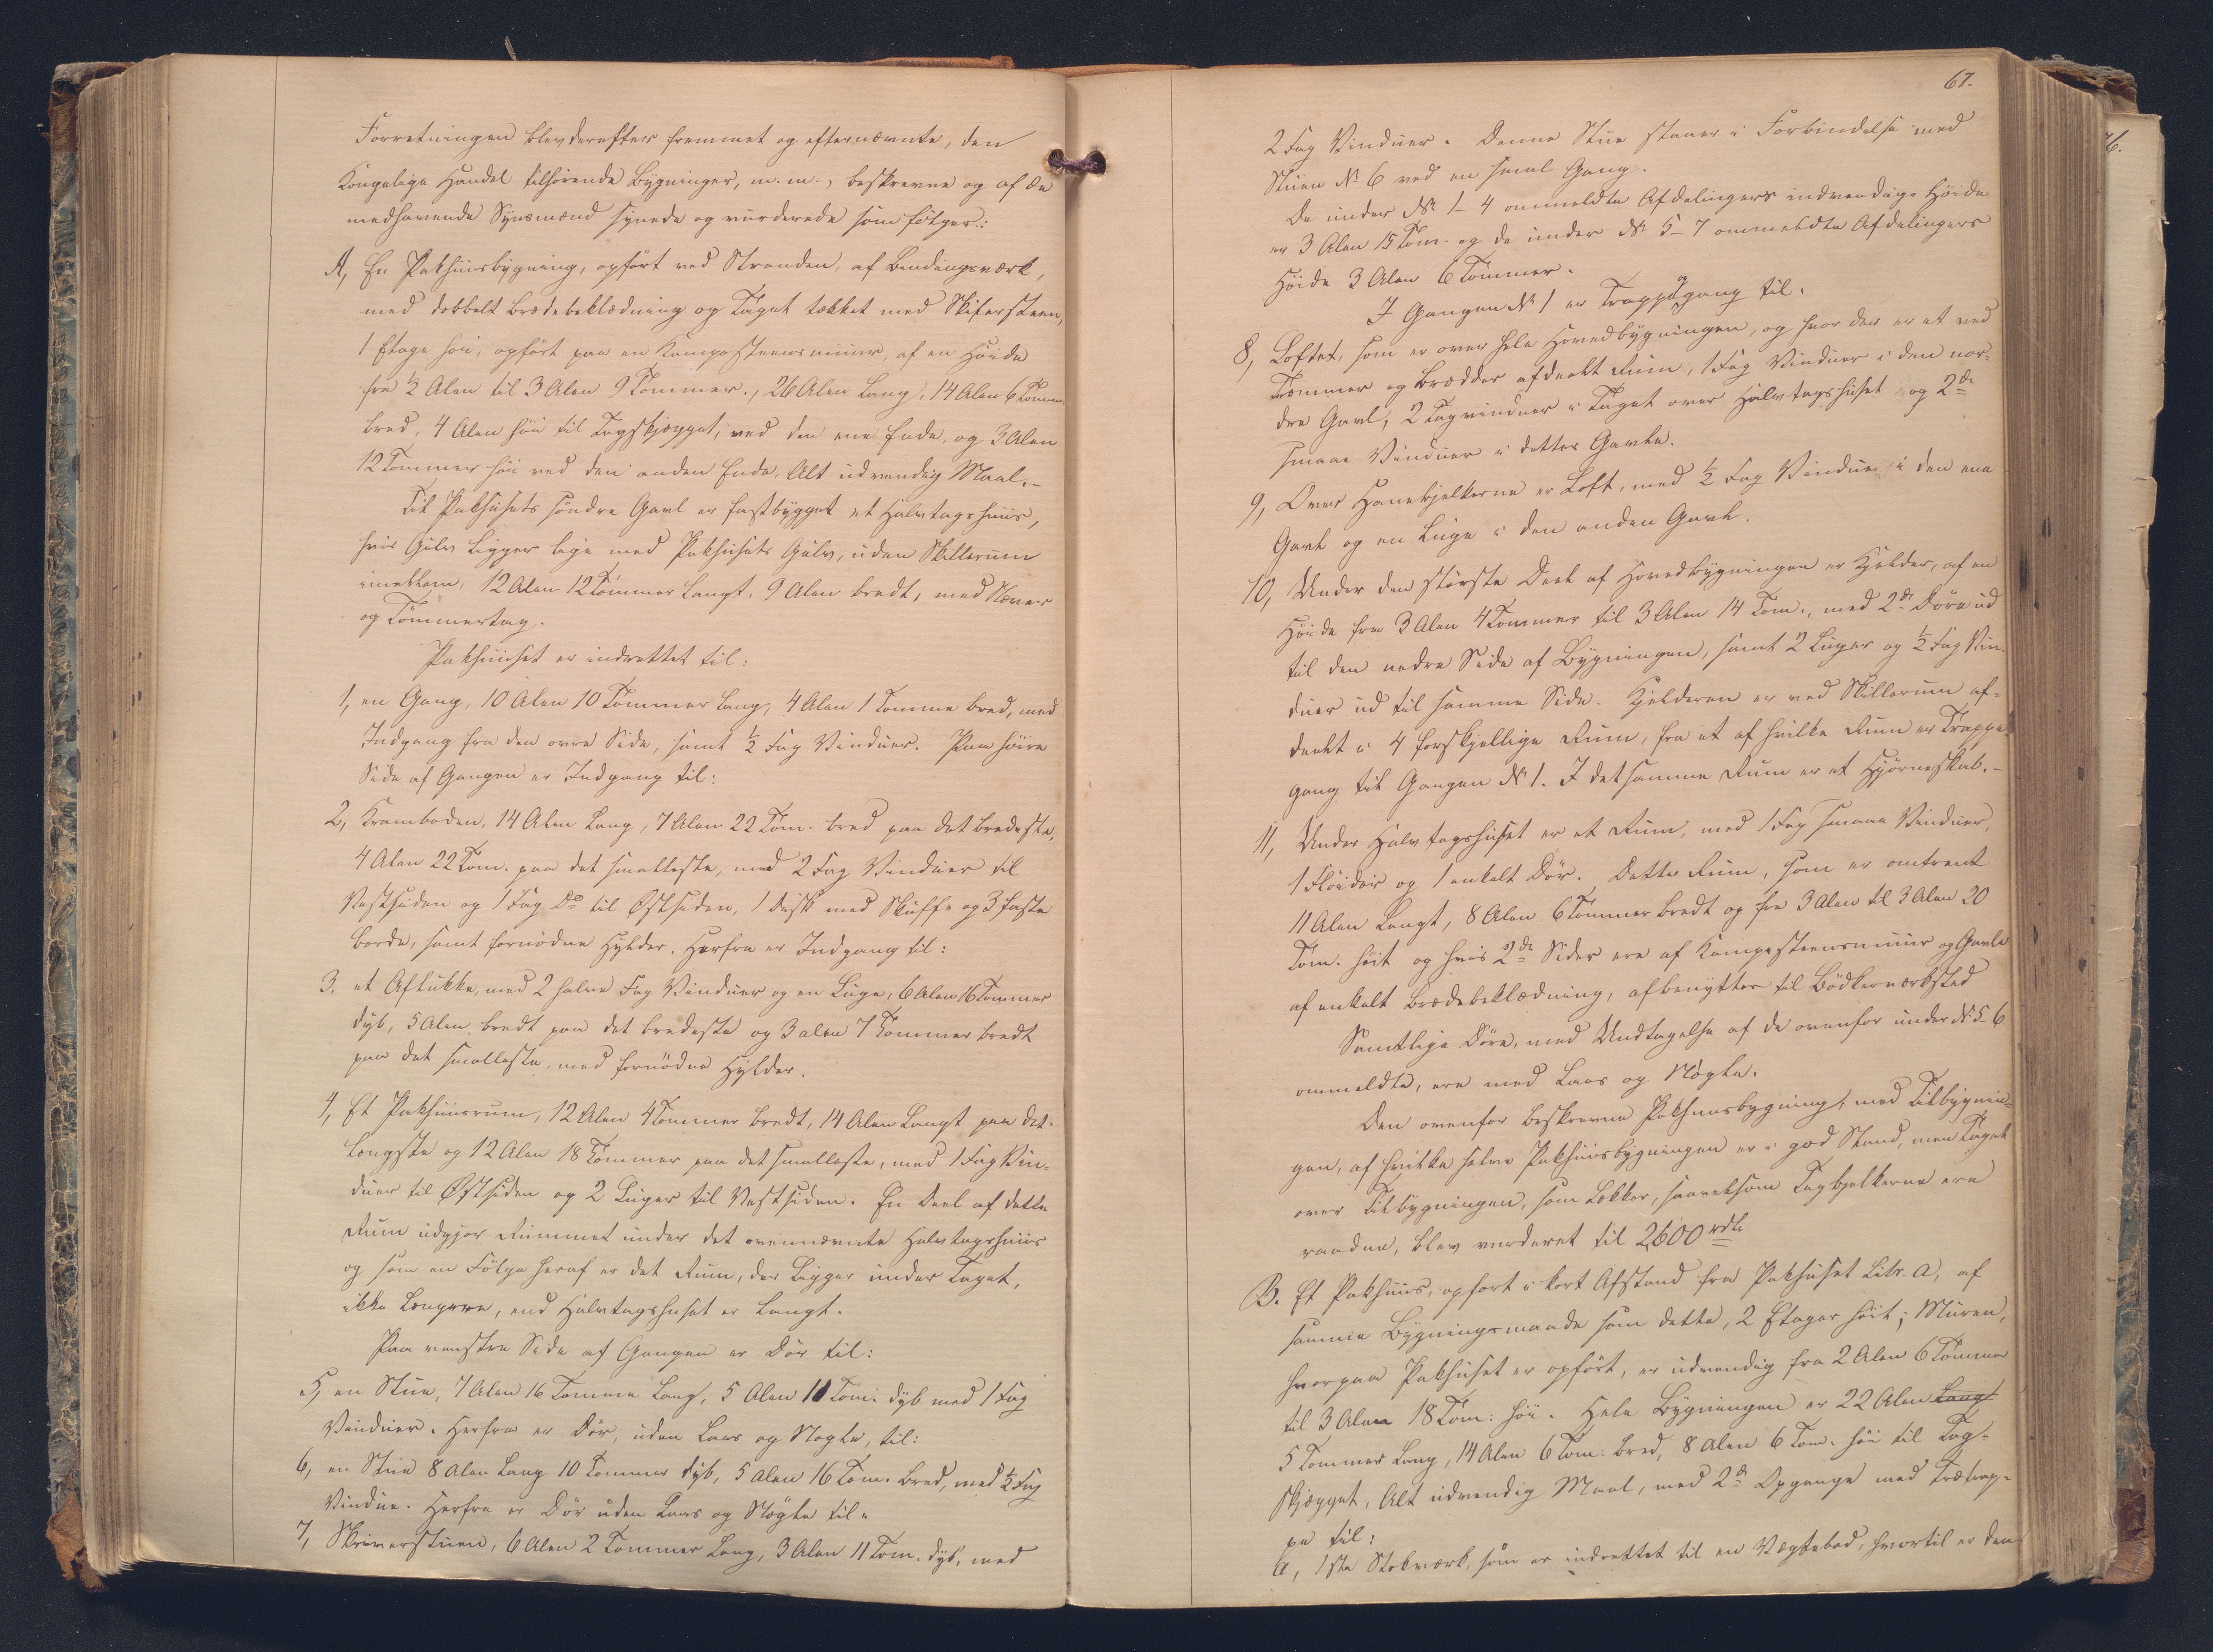 Forretningen blev derefter fremmet og efternævnte, den
Kongelige Handel tilhørende Bygninger, m. m., beskrevne og af de
medhavende Synsmænd synede og vurderede som følger:
A, En Pakhuusbygning, opført ved Stranden, af Bindingsværk,
med dobbelt Brædebeklædning og Taget tækket med Skifersteen,
1 Etage høi, opført paa en Kampesteensmuur, af en Høide
fra ½ Alen til 3 Alen 9 Tommer., 26 Alen lang, 14 Alen 6 Tommer
bred, 4 Alen høi til Tagskjægget, ved den ene Ende, og 3 Alen
12 Tommer høi ved den anden Ende, Alt udvendig Maal.-
Til Pakhusets søndre Gavl er fastbygget et Halvtagshuus,
hvis Gulv ligger lige med Pakhusets Gulv, uden Skillerum
imellem, 12 Alen 12 Tommer langt, 9 Alen bredt, med Næver
og Tømmertag.
Pakhuuset er indrettet til:
1, en Gang, 10 Alen 10 Tommer lang, 4 Alen 1 Tomme bred, med
Indgang fra den øvre Side, samt ½ Fag Vinduer. Paa høire
Side af Gangen er Indgang til:
2, Kramboden, 14 Alen lang, 7 Alen 22 Tom. bred paa det bredeste,
4 Alen 22 Tom. paa det smalleste, med 2 Fag Vinduer til
Vestsiden og 1 Fag Do til Østsiden, 1 Disk med Skuffe og 3 faste
Borde, samt fornødne Hylder. Herfra er Indgang til:
3, et Aflukke, med 2 halve Fag Vinduer og en Luge, 6 Alen 16 Tommer
dyb, 5 Alen bredt paa det bredeste og 3 alen 7 Tommer bredt
paa det smalleste, med fornødne Hylder.
4, Et Pakhuusrum, 12 Alen 4 Tommer bredt, 14 Alen langt paa det
længste og 12 Alen 18 Tommer paa det smalleste, med 1 Fag Vin-
duer til Østsiden og 2 Luger til Vestsiden. En Deel af dette
Rum udgjør Rummet under det ovennævnte Halvtagshuus
og som en Følge heraf er det Rum, der ligger under Taget,
ikke længere, end Halvtagshuset er langt.
Paa venstre Side af Gangen er Dør til:
5, en Stue, 7 Alen 16 Tomme lang, 5 Alen 10 Tom. dyb med 1 Fag
Vinduer. Herfra er Dør, uden Laas og Nøgle, til:
6, en Stue 8 Alen lang 10 Tommer dyb, 5 Alen 16 Tom. bred, med ½ Fag
Vindue. Herfra er Dør uden Laas og Nøgle til:
7, Skriverstuen, 6 Alen 2 Tommer lang, 3 Alen 11 Tom. dyb, med
67.
2 Fag Vinduer. Denne Stue staaer i Forbindelse med
Stuen No 6 ved en smal Gang.
De under No 1-4 ommeldte Afdelingers indvendige Høide
er 3 Alen 15 Tom. og de under No 5-7 ommeldte Afdelingers
Høide 3 Alen 6 Tommer.
I Gangen No 1 er Trappeopgang til:
8, Loftet, som er over hele Hovedbygningen, og hvor der er et ved
Tømmer og Brædder afdeelt Rum, 1 Fag Vinduer i den nor-
dre Gavl, 2 Tagvinduer i Taget over Halvtagshuset og 2de
smaae Vinduer i dettes Gavle.
9, Over Hanebjelkerne er Loft, med ½ Fag Vindue i den ene
Gavl og en Luge i den anden Gavl.
10, Under den største Deel af Hovedbygningen er Kjelder, af en
Høide fra 3 Alen 4 Tommer til 3 Alen 14 Tom., med 2de Døre ud
til den nedre Side af Bygningen, samt 2 Luger og ½ Fag Vin-
duer ud til samme Side. Kjelderen er ved Skillerum af-
deelt i 4 forskjellige Rum, fra et af hvilke Rum er Trappe-
gang til Gangen No 1. I det samme Rum er et Hjørneskab.-
11, Under Halvtagshuset er et Rum, med 1 Fag smaae Vinduer,
1 Fløidør og 1 enkelt Dør. Dette Rum, som er omtrent
11 Alen langt, 8 Alen 6 Tommer bredt og fra 3 Alen til 3 Alen 20
Tom. høit og hvis 2de Sider ere af Kampesteensmuur og Gavle
af enkelt Brædebeklædning, afbenyttes til Bødkerværksted
Samtlige Døre, med Undtagelse af de ovenfor under No 5-6
ommeldte, ere med Laas og Nøgle.
Den ovenfor beskrevne Pakhuusbygning, med Tilbygnin-
gen, af hvilke selve Pakhuusbygningen er i god Stand, men Taget
over Tilbygningen, som lækker, saavelsom Tagbjelkerne ere
raadne, blev vurderet til 2600 rdlr
B. Et Pakhuus, opført i kort Afstand fra Pakhuset Litr. A, af
samme Bygningsmaade som dette, 2 Etager høit; Muren,
hvorpaa Pakhuset er opført, er udvendig fra 2 Alen 6 Tommer
til 3 Alen 18 Tom: høi. Hele Bygningen er 22 Alen lang
5 Tommer lang, 14 Alen 6 Tom: bred, 8 Alen 6 Tom. høi til Tag-
skjægget, Alt udvendig Maal, med 2de Opgange med Trætrap-
pe til:
a, 1ste Stokværk, som er indrettet til en Vægtebod, hvortil er den